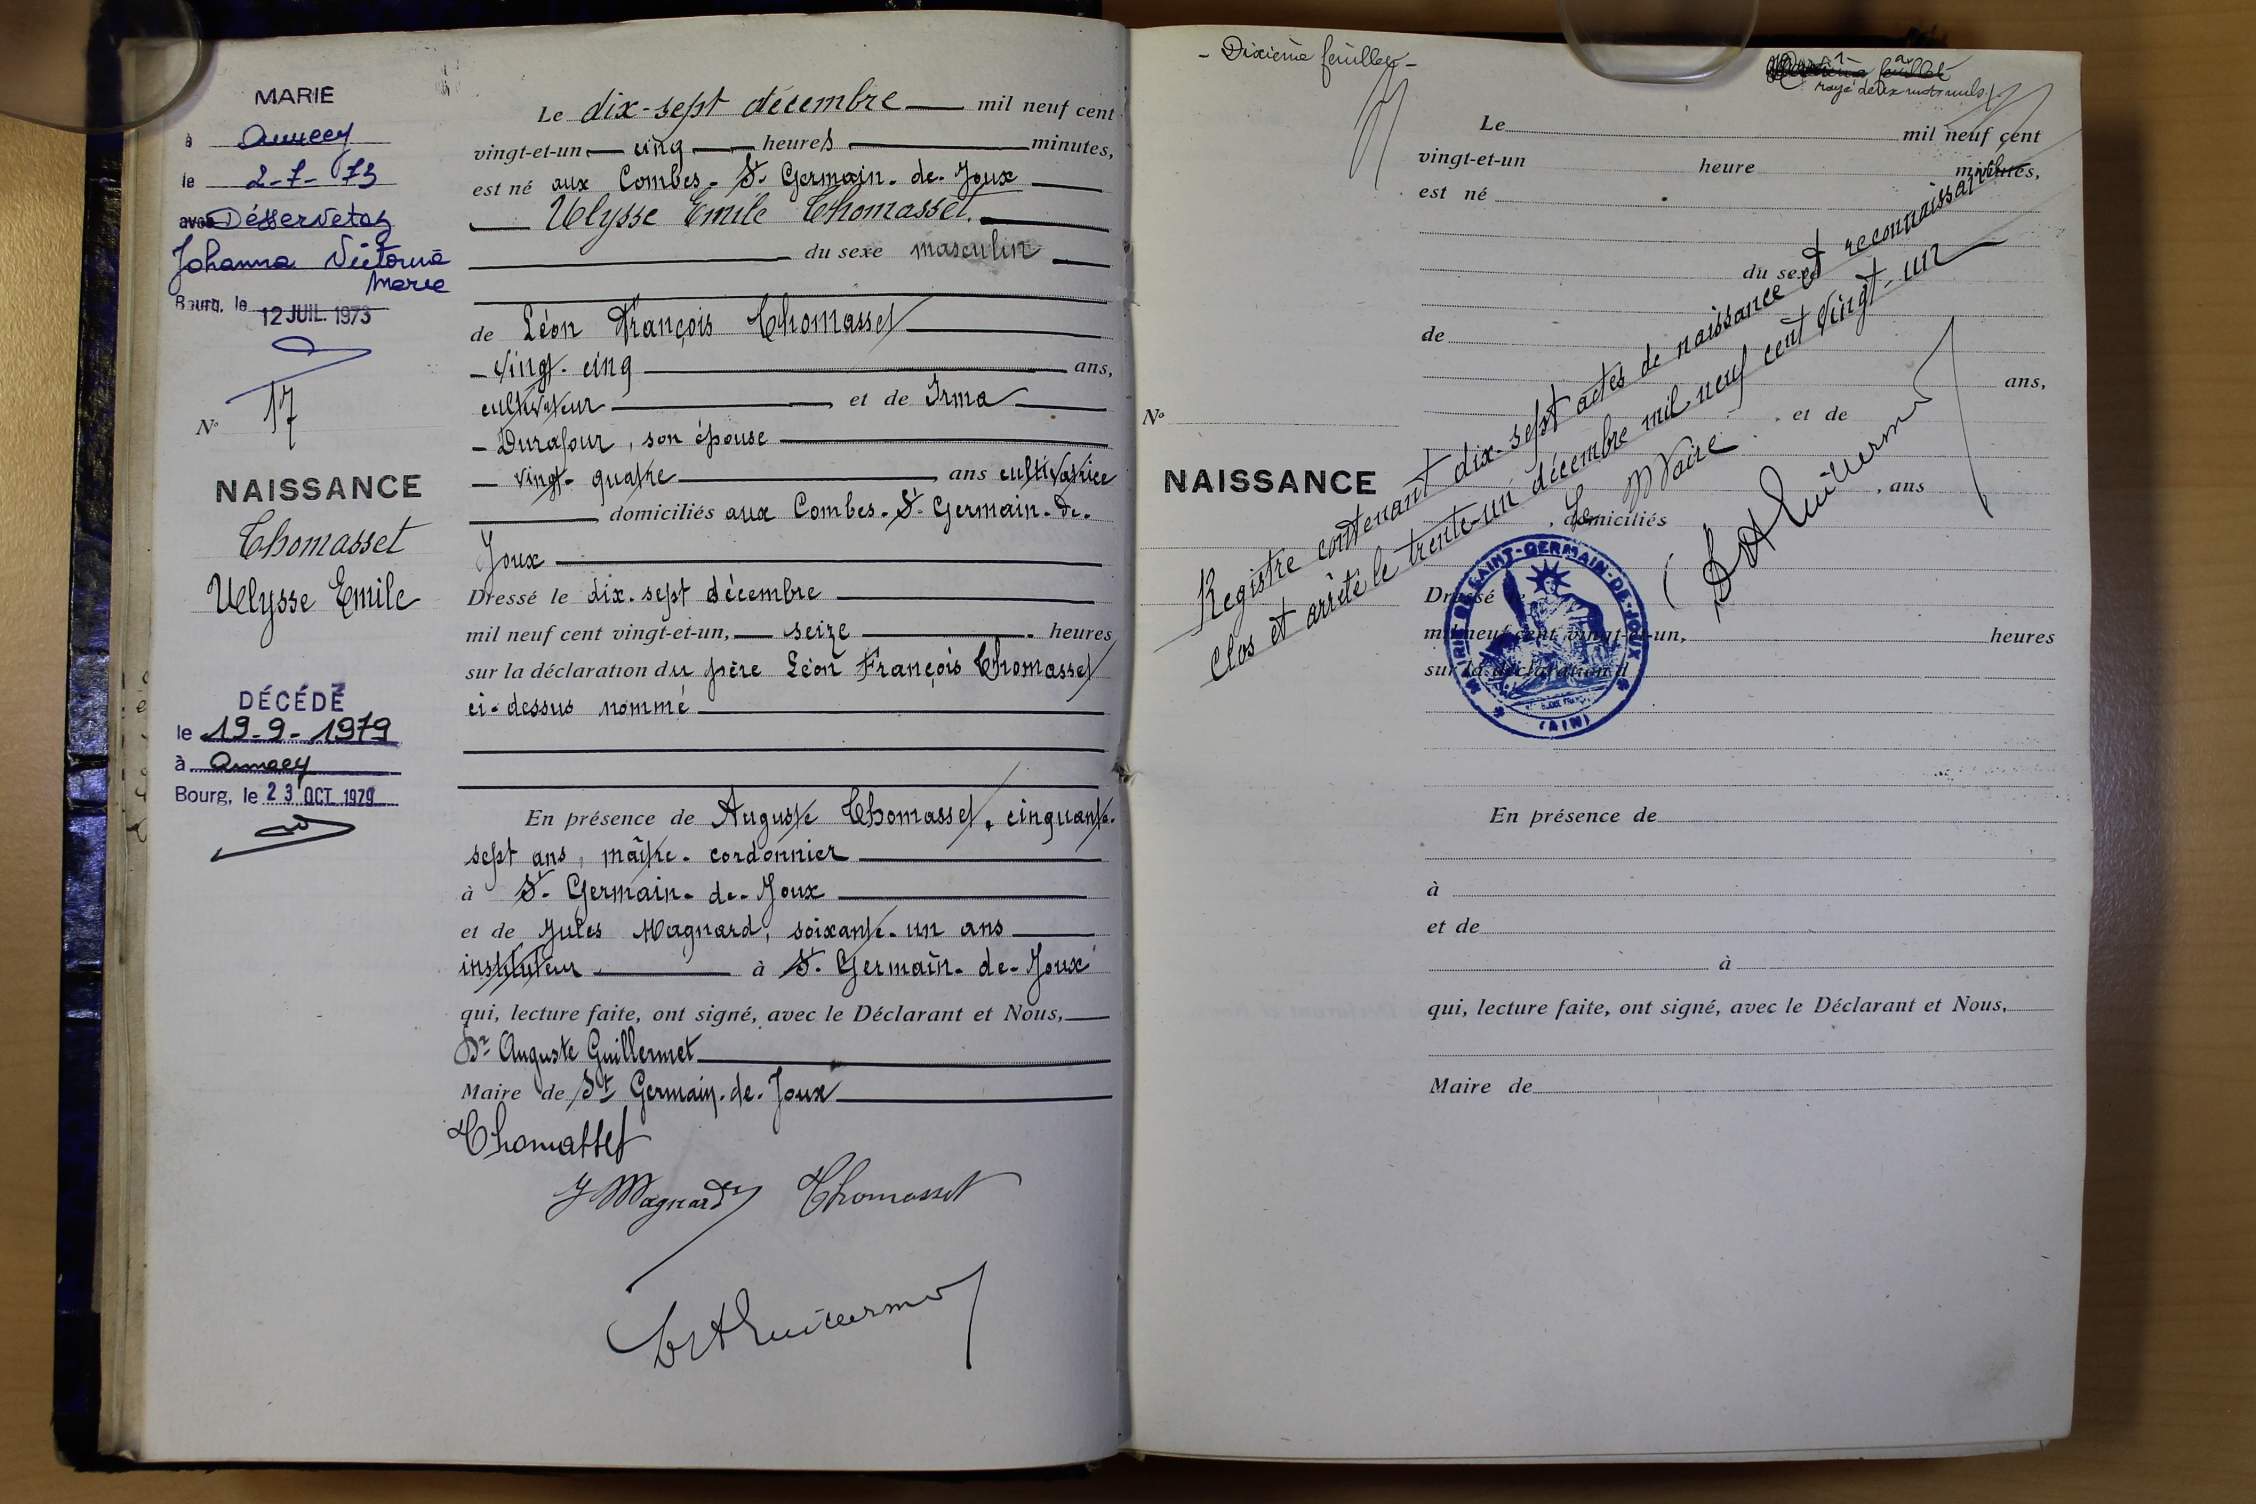 MARIE
à Annecy
le 2-7-73
avec Desservetaz
Johanna Victorine
Marie
Bourg, le 12 JUIL. 1973
N° 17
NAISSANCE
Thomasset
Ulysse Emile
DÉCÉDÉ
le 19-9-1979
à Annecy
Bourg, le 23 OCT. 1979
Le dix-sept décembre mil neuf cent
vingt-et-un cinq heures minutes,
est né aux Combes. St Germain. de. Joux
Ulysse Emile Thomasset.
du sexe masculin
de Léon François Thomasset
vingt. cinq ans,
cultivateur et de Irma
Durafour, son épouse
vingt. quatre ans cultivatrice
domiciliés aux Combes. St Germain. de.
Joux
Dressé le dix. sept décembre
mil neuf cent vingt-et-un, seize heures
sur la déclaration du père Léon François Thomasset
ci-dessus nommé
En présence de Auguste Thomasset, cinquante.
sept ans, maître. cordonnier
à St Germain. de. Joux
et de Jules Magnard, soixante. un ans
instituteur à St Germain. de. Joux
qui, lecture faite, ont signé, avec le Déclarant et Nous,
Dr Auguste Guillermet
Maire de St Germain. de. Joux
Thomasset
J Magnard Thomasset
Dr A Guillermet
- Dixième feuillet -
feuillet
rayé deux mots nuls
Le mil neuf cent
vingt-et-un heure minutes,
est né
du sexe
de
ans,
N° et de
NAISSANCE
, ans
, domiciliés
Dressé le
mil neuf cent vingt-et-un, heures
sur la déclaration d
Registre contenant dix-sept actes de naissance et reconnaissance
clos et arrêté le trente-un décembre mil neuf cent vingt-un
Le Maire
Dr A Guillermet
MAIRIE DE SAINT-GERMAIN-DE-JOUX
(AIN)
En présence de
à
et de
à
qui, lecture faite, ont signé, avec le Déclarant et Nous,
Maire de